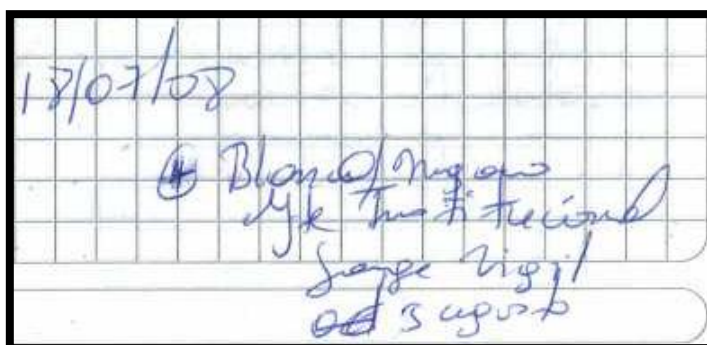 18/07/08
Blanco/Negro
Institucional
Jorge Vigil
3 agosto